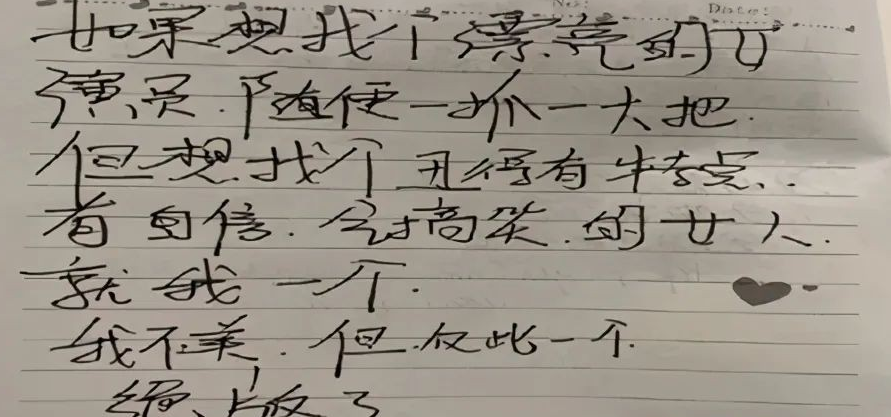 No: Date:
如果想找个漂亮的女
演员.随便一抓一大把.
但想找个丑得有特点..
有自信.会搞笑.的女人.
就我一个.
我不美.但.仅此一个.
绝版了